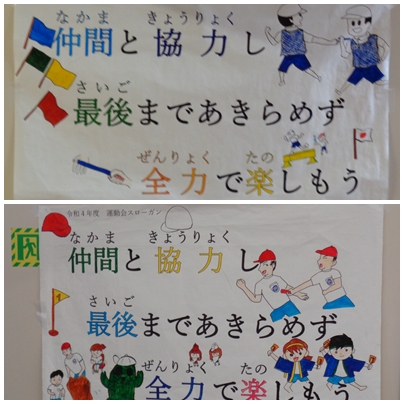 なかま きょうりょく
仲間と協力し
さいご
最後まであきらめず
ぜんりょく たの
全力で楽しもう
令和4年度 運動会スローガン
なかま きょうりょく
仲間と協力し
さいご
最後まであきらめず
ぜんりょく たの
全力で楽しもう